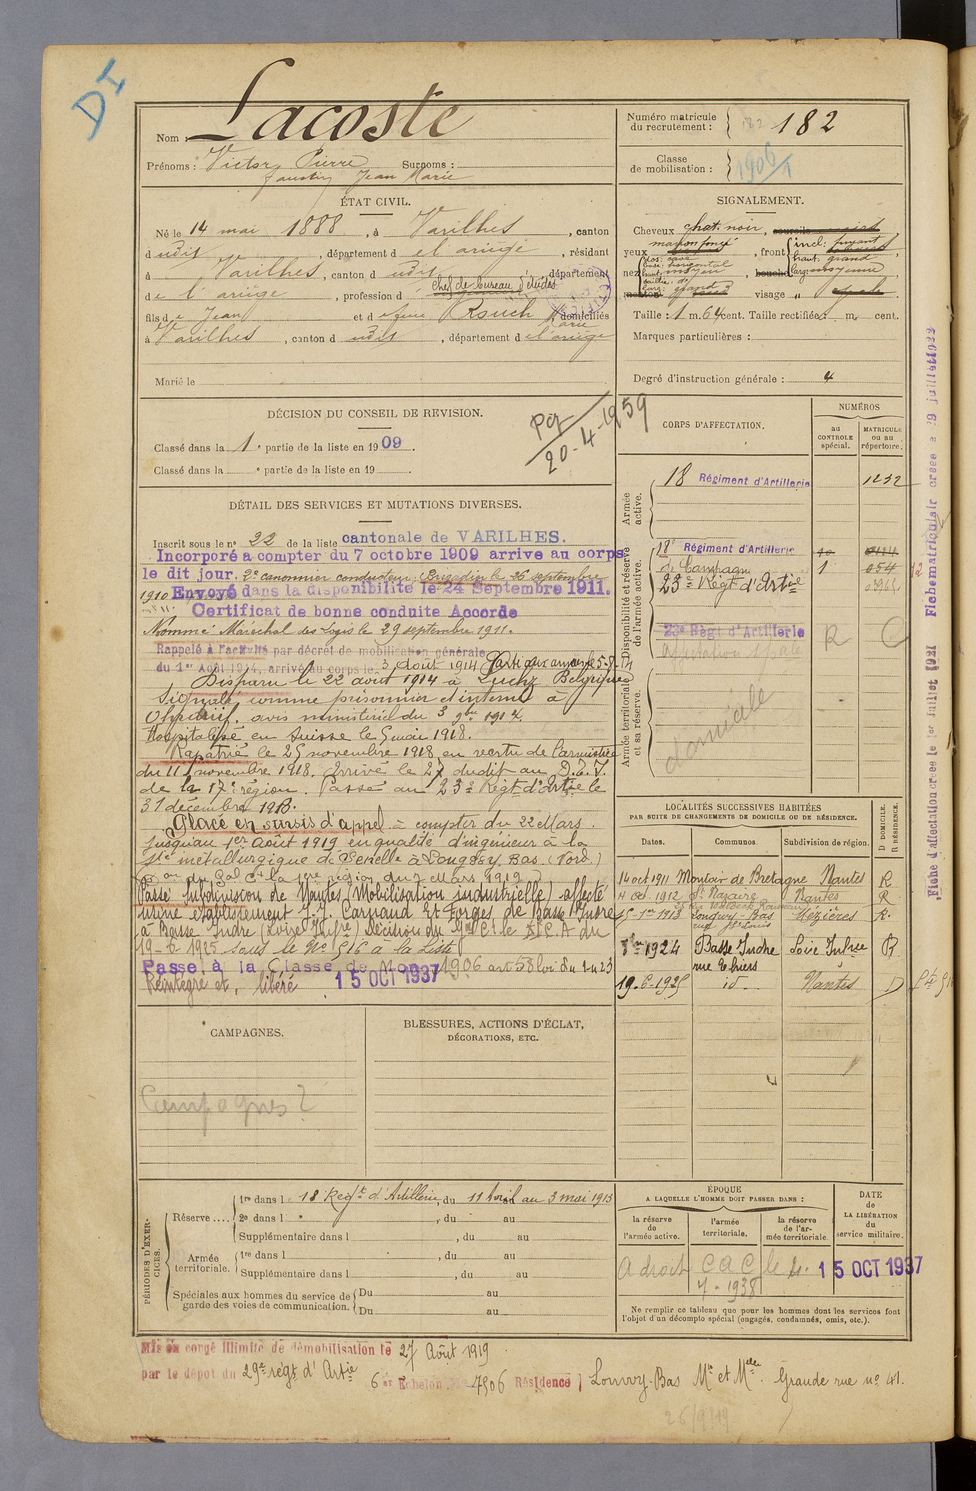 DI
Nom : Lacoste
Prénoms : Victor Pierre Surnoms :
faustin Jean Marie
Numéro matricule du recrutement : 182 182
Classe de mobilisation : 1906
ÉTAT CIVIL.
Né le 14 mai 1888, à Varilhes, canton
d udit, département d e l'ariège, résidant
à Varilhes, canton d udit, département
d e l'ariège, profession d chef de bureau d'études
fils d e Jean et d e feue Rouch Marie domiciliés
à Varilhes, canton d udit, département d e l'ariège
Marié le
SIGNALEMENT.
Cheveux chat. noir,
yeux marron foncé, front incl: fuyant
haut. grand
nez dos: cave
base: horizontal
haut. moyen
larg: moyenne
visage
Taille : 1 m. 64 cent. Taille rectifiée : m. cent.
Marques particulières :
Degré d'instruction générale : 4
DÉCISION DU CONSEIL DE REVISION.
Classé dans la 1e partie de la liste en 1909.
Classé dans la e partie de la liste en 19
20-4-1959
DÉTAIL DES SERVICES ET MUTATIONS DIVERSES.
Inscrit sous le no 22 de la liste cantonale de VARILHES.
Incorporé a compter du 7 octobre 1909 arrive au corps
le dit jour. 2e canonnier conducteur. Brigadier le 26 septembre
1910 Envoyé dans la disponibilité le 24 Septembre 1911.
Certificat de bonne conduite Accordé
Nommé Maréschal des logis le 29 septembre 1911.
Rappelé à l'activité par décret de mobilisation générale
du 1er Août 1914, arrivé au corps le 3 août 1914 Parti aux armées 5-8-14
Disparu le 22 août 1914 à Luchy Belgique
Signalé comme prisonnier et interné à
Ohrdruf, avis ministériel du 3 9bre 1914.
Hospitalisé en Suisse le 5 mai 1918.
Rapatrié le 25 novembre 1918 en vertu de l'armistice
du 11 novembre 1918. Arrivé le 27 dudit au D.T.I.
de la 17e région. Passé au 23e Régt d'Artie le
31 décembre 1918.
Placé en sursis d'appel à compter du 22 Mars
jusqu'au 1er Août 1919 en qualité d'ingénieur à la
Sté métallurgique de Senelle à Longwy-Bas.
Passé Subdivision de Nantes (Mobilisation industrielle) affecté
Usine établissement J.J. Carnaud Et Forges de Basse Indre
à Basse Indre (Loire Infre) Décision du Gal Ct le XI C.A du
19-6 1925 sous le No 516 à la Liste
Passé à la Classe de Mon 1906 art 58 loi du 1-4-23
Réintégré et, libéré 15 OCT 1937
CORPS D'AFFECTATION.
NUMÉROS
au CONTROLE spécial.
MATRICULE ou au répertoire.
Armée active.
18 Régiment d'Artillerie 1232
Disponibilité et réserve de l'armée active.
18e Régiment d'Artillerie
de Campagne 1 054
23e Régt d'Artie
23e Régt d'Artillerie R
affectation spéciale
Armée territoriale et sa réserve.
domicile
LOCALITÉS SUCCESSIVES HABITÉES
PAR SUITE DE CHANGEMENTS DE DOMICILE OU DE RÉSIDENCE.
Dates. Communes Subdivision de région. D DOMICILE. R RÉSIDENCE.
14 oct 1911 Montoir de Bretagne Nantes R
4 Oct 1912 St Nazaire Nantes R
15-1er 1913 Longwy-Bas Mézières R.
1924 Basse Indre Loire Infre R
rue Thiers
19-6-1925 id Nantes D
CAMPAGNES.
Campagnes ?
BLESSURES, ACTIONS D'ÉCLAT, DÉCORATIONS, ETC.
PÉRIODES D'EXERCICES.
Réserve .... 1re dans l e 18 Regt d'Artillerie, du 11 Avril au 3 mai 1913
2e dans l , du au
Supplémentaire dans l , du au
Armée territoriale. 1re dans l , du au
Supplémentaire dans l , du au
Spéciales aux hommes du service de garde des voies de communication. Du au
Du au
ÉPOQUE
A LAQUELLE L'HOMME DOIT PASSER DANS :
la réserve de l'armée active.
l'armée territoriale.
la réserve de l'armée territoriale.
DATE DE LA LIBÉRATION du service militaire.
A droit CAC le 15 OCT 1937
1938
Ne remplir ce tableau que pour les hommes dont les services font
l'objet d'un décompte spécial (engagés, condamnés, omis, etc.).
Mis en congé illimité de démobilisation le 27 Août 1919
par le dépot du 29e régt d'Artie 6e Echelon 7906 Résidence Longwy-Bas Mthe et Mlle. Grande rue no 41.
26/9/19
Fiche d'affectation créée le 1er juillet 1921 Fiche matriculaire créée le 29 juillet 1922